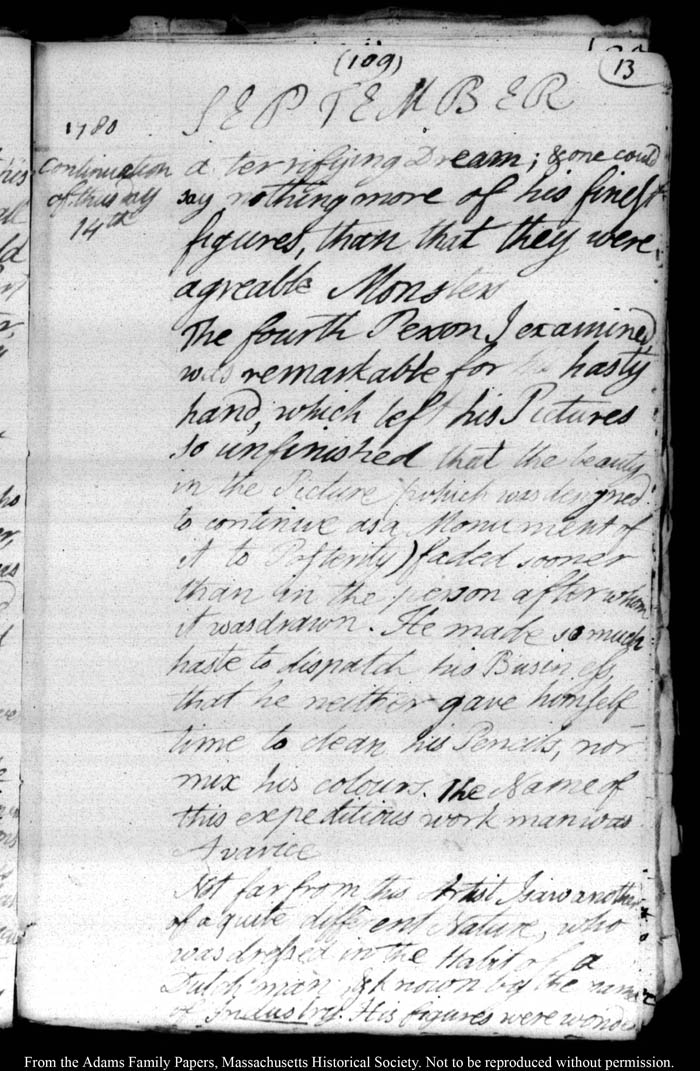 (109)
13
SEPTEMBER
1780
Continuation
of thus day
14th
a terrifying Dream; & one could
say nothing more of his finest
figures, than that they were
agreable Monsters
The fourth Person I examined,
was remarkable for his hasty
hand, which left his Pictures
so unfinished that the beauty
in the Picture (which was designed
to continue as a Monument of
it to Posterity) faded sooner
than in the person after whom
it was drawn. He made so much
haste to dispatch his Business,
that he neither gave himself
time to clean his Pencils, nor
mix his colours. The Name of
this expeditious workman was
Avarice
Not far from this Artist I saw another
of a quite different Nature, who
was dressed in the Habit of a
Dutchman, & known by the name
of Industry. His figures were wonde
From the Adams Family Papers, Massachusetts Historical Society. Not to be reproduced without permission.